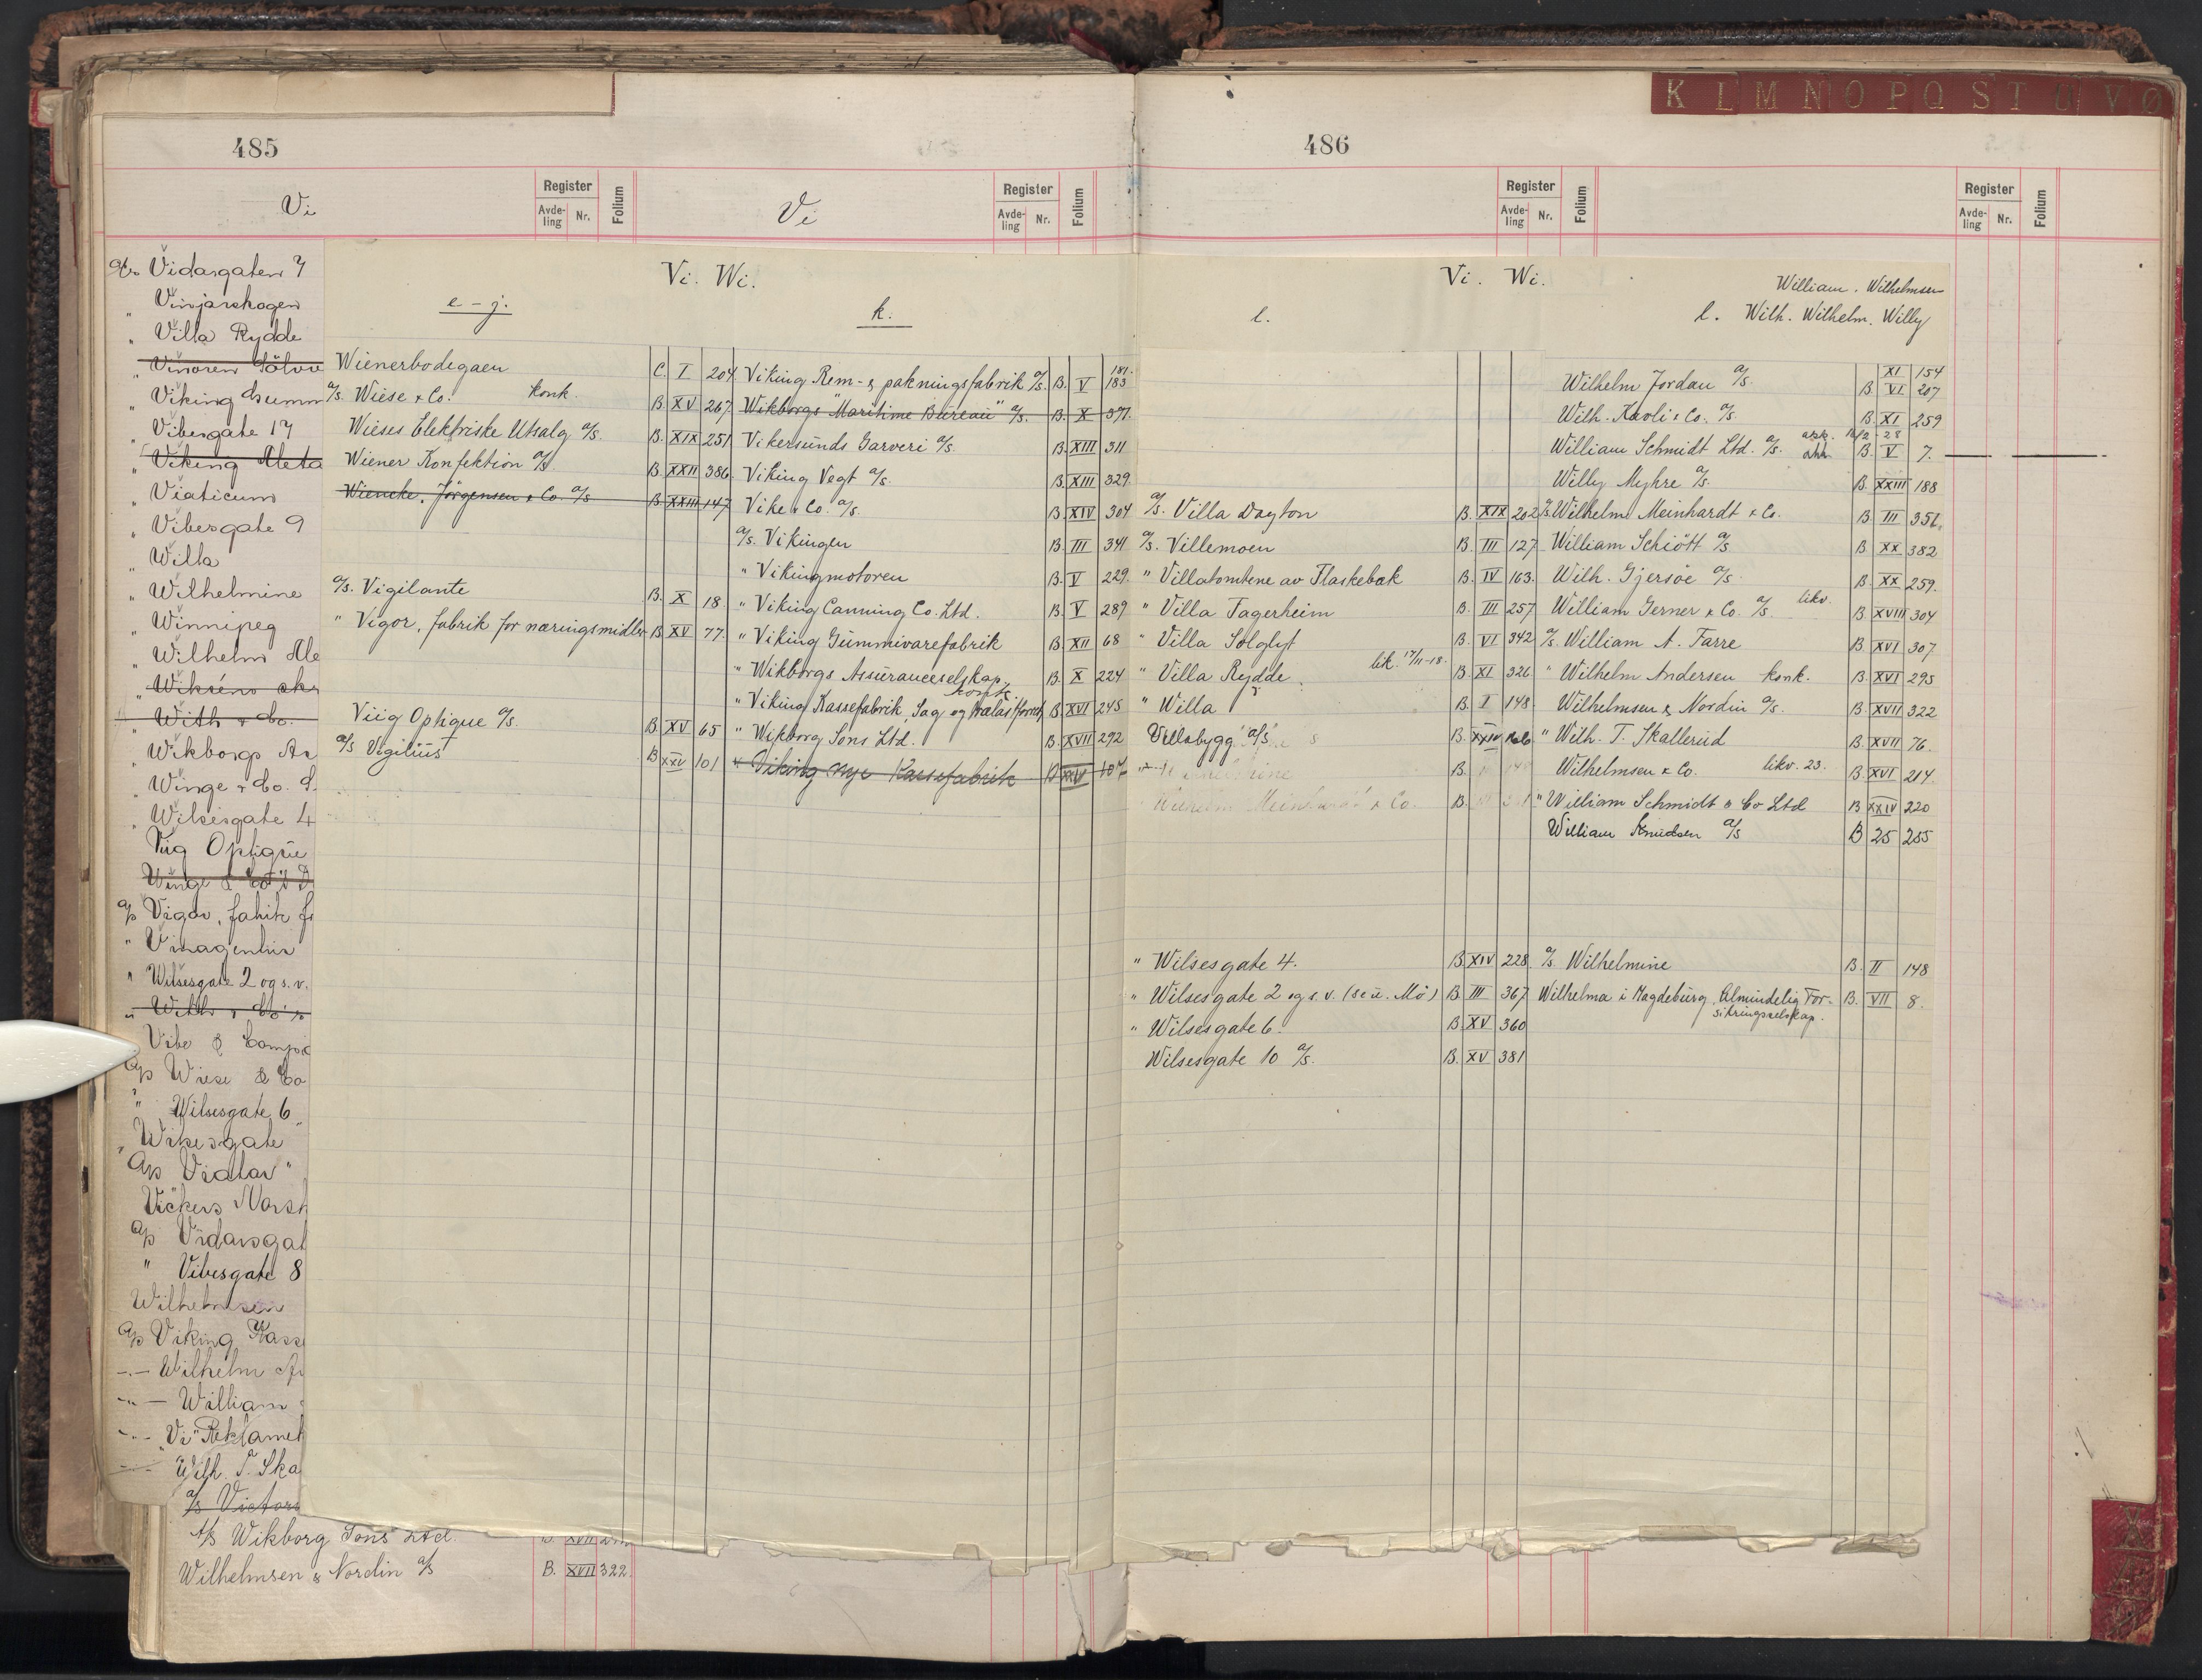 485
Vi
Register
Avde-
ling
Nr.
Folium
Vi
Register
Avde-
ling
Nr.
Folium
A/s Vidarsgaten 7
" Vinjarskogen
" Villa Rydde
" Vinoren Sölv
" Viking Gumm
" Vibesgate 17
" Viking Meta
" Viaticum
" Vibesgate 9
" Willa
" Wilhelmine
" Winnipeg
" Wilhelm Me
" With & Co.
" Wikborgs As
" Winge & Co.
" Wilsesgate 4
Viig Optique
Winge & Co's
A/s Vigor, fabrik f
" Vinagentur
" Wilsesgate 2 og s.v.
" With & Co's
Vibe & Compa
A/s Wiese & Co
" Wilsesgate 6
" Wilsesgate
A/s Vidar"
Vickers Norsk
A/s Vidarsgat
" Vibesgate 8
Wilhelmsen
A/s Viking Kass
-"- Wilhelm An
-"- William
-"- "Vi" Reklamet
-"- Wilh. T. Ska
A/s Victor
A/s Wikborg Sons Ltd. B. XVII
Wilhelmsen & Nordin A/s B. XVII 322.
Vi. Wi.
e - j.
Wienerbodegaen C. I 204
A/s. Wiese & Co. konk. B. XV 267
Wieses Elektriske Utsalg A/s. B. XIX 251
Wiener Konfektion A/s B. XXII 386
Wiencke, Jörgensen & Co. A/s B. XXIII 147
A/s. Vigilante B. X 18
" Vigor, fabrik for næringsmidler B. XV 77.
Viig Optique A/s. B. XV 65
A/s Vigilius B XXV 101
k.
Viking Rem- & pakningsfabrik A/s. B. V 181. 183
Wikborgs "Maritime Bureau" A/s. B. X 371.
Vikersunds Garveri A/s. B. XIII 311
Viking Vegt A/s. B. XIII 329
Vike & Co. A/s. B. XIV 304
A/s. Vikingen B. III 341
" Vikingmotoren B. V 229.
" Viking Canning Co. Ltd. B. V 289
" Viking Gummivarefabrik B. XII 68
" Wikborgs Assuranceselskap B. X 224
konk
" Viking Kassefabrik, Sag og B. XVI 245
" Wikborg Sons Ltd. B. XVII 292
" Viking nye Kassefabrik B XXIV 107
486
Register
Avde-
ling
Nr.
Folium
Register
Avde-
ling
Nr.
Folium
K L M N O P Q S T U V Ø
Vi. Wi.
l.
A/s. Villa Dayton B. XIX 202
A/s. Villemoen B. III 127
" Villatomtene av Flaskebæk B. IV 163.
" Villa Fagerheim B. III 257
" Villa Solglyt B. VI 342
" Villa Rydde lik. 17/11-18. B. XI 326
" Willa B. I 148
Villabygg A/s B. XXIV
Wilhelm Meinhardt & Co. B.
" Wilsesgate 4. B. XIV 228
" Wilsesgate 2 og s.v. (se u. Mö) B. III 367
" Wilsesgate 6. B. XV 360
Wilsesgate 10 A/s. B. XV 381
William. Wilhelmsen
l. Wilh. Wilhelm. Willy
Wilhelm Jordan A/s. XI 154 B. VI 207
Wilh. Kavli & Co. A/s. B. XI 259
William Schmidt Ltd. A/s. B. V 7.
Willy Myhre A/s. B. XXIII 188
A/s. Wilhelm Meinhardt & Co. B. III 351.
William Schiött A/s. B. XX 382
Wilh. Gjersöe A/s. B. XX 259.
William Gerner & Co. A/s. likv. B. XVIII 304
A/s. William A. Farre B. XVI 307.
" Wilhelm Andersen konk. B. XVI 295
Wilhelmsen & Nordin A/s. B. XVII 322
" Wilh. T. Skallerud B. XVII 76.
Wilhelmsen & Co. likv. 23. B. XVI 214.
" William Schmidt & Co Ltd B XXIV 220
William Knudsen A/s B 25 255
A/s. Wilhelmine B. II 148
Wilhelma i Magdeburg, Almindelig For-
sikringsselskap. B. VII 8.